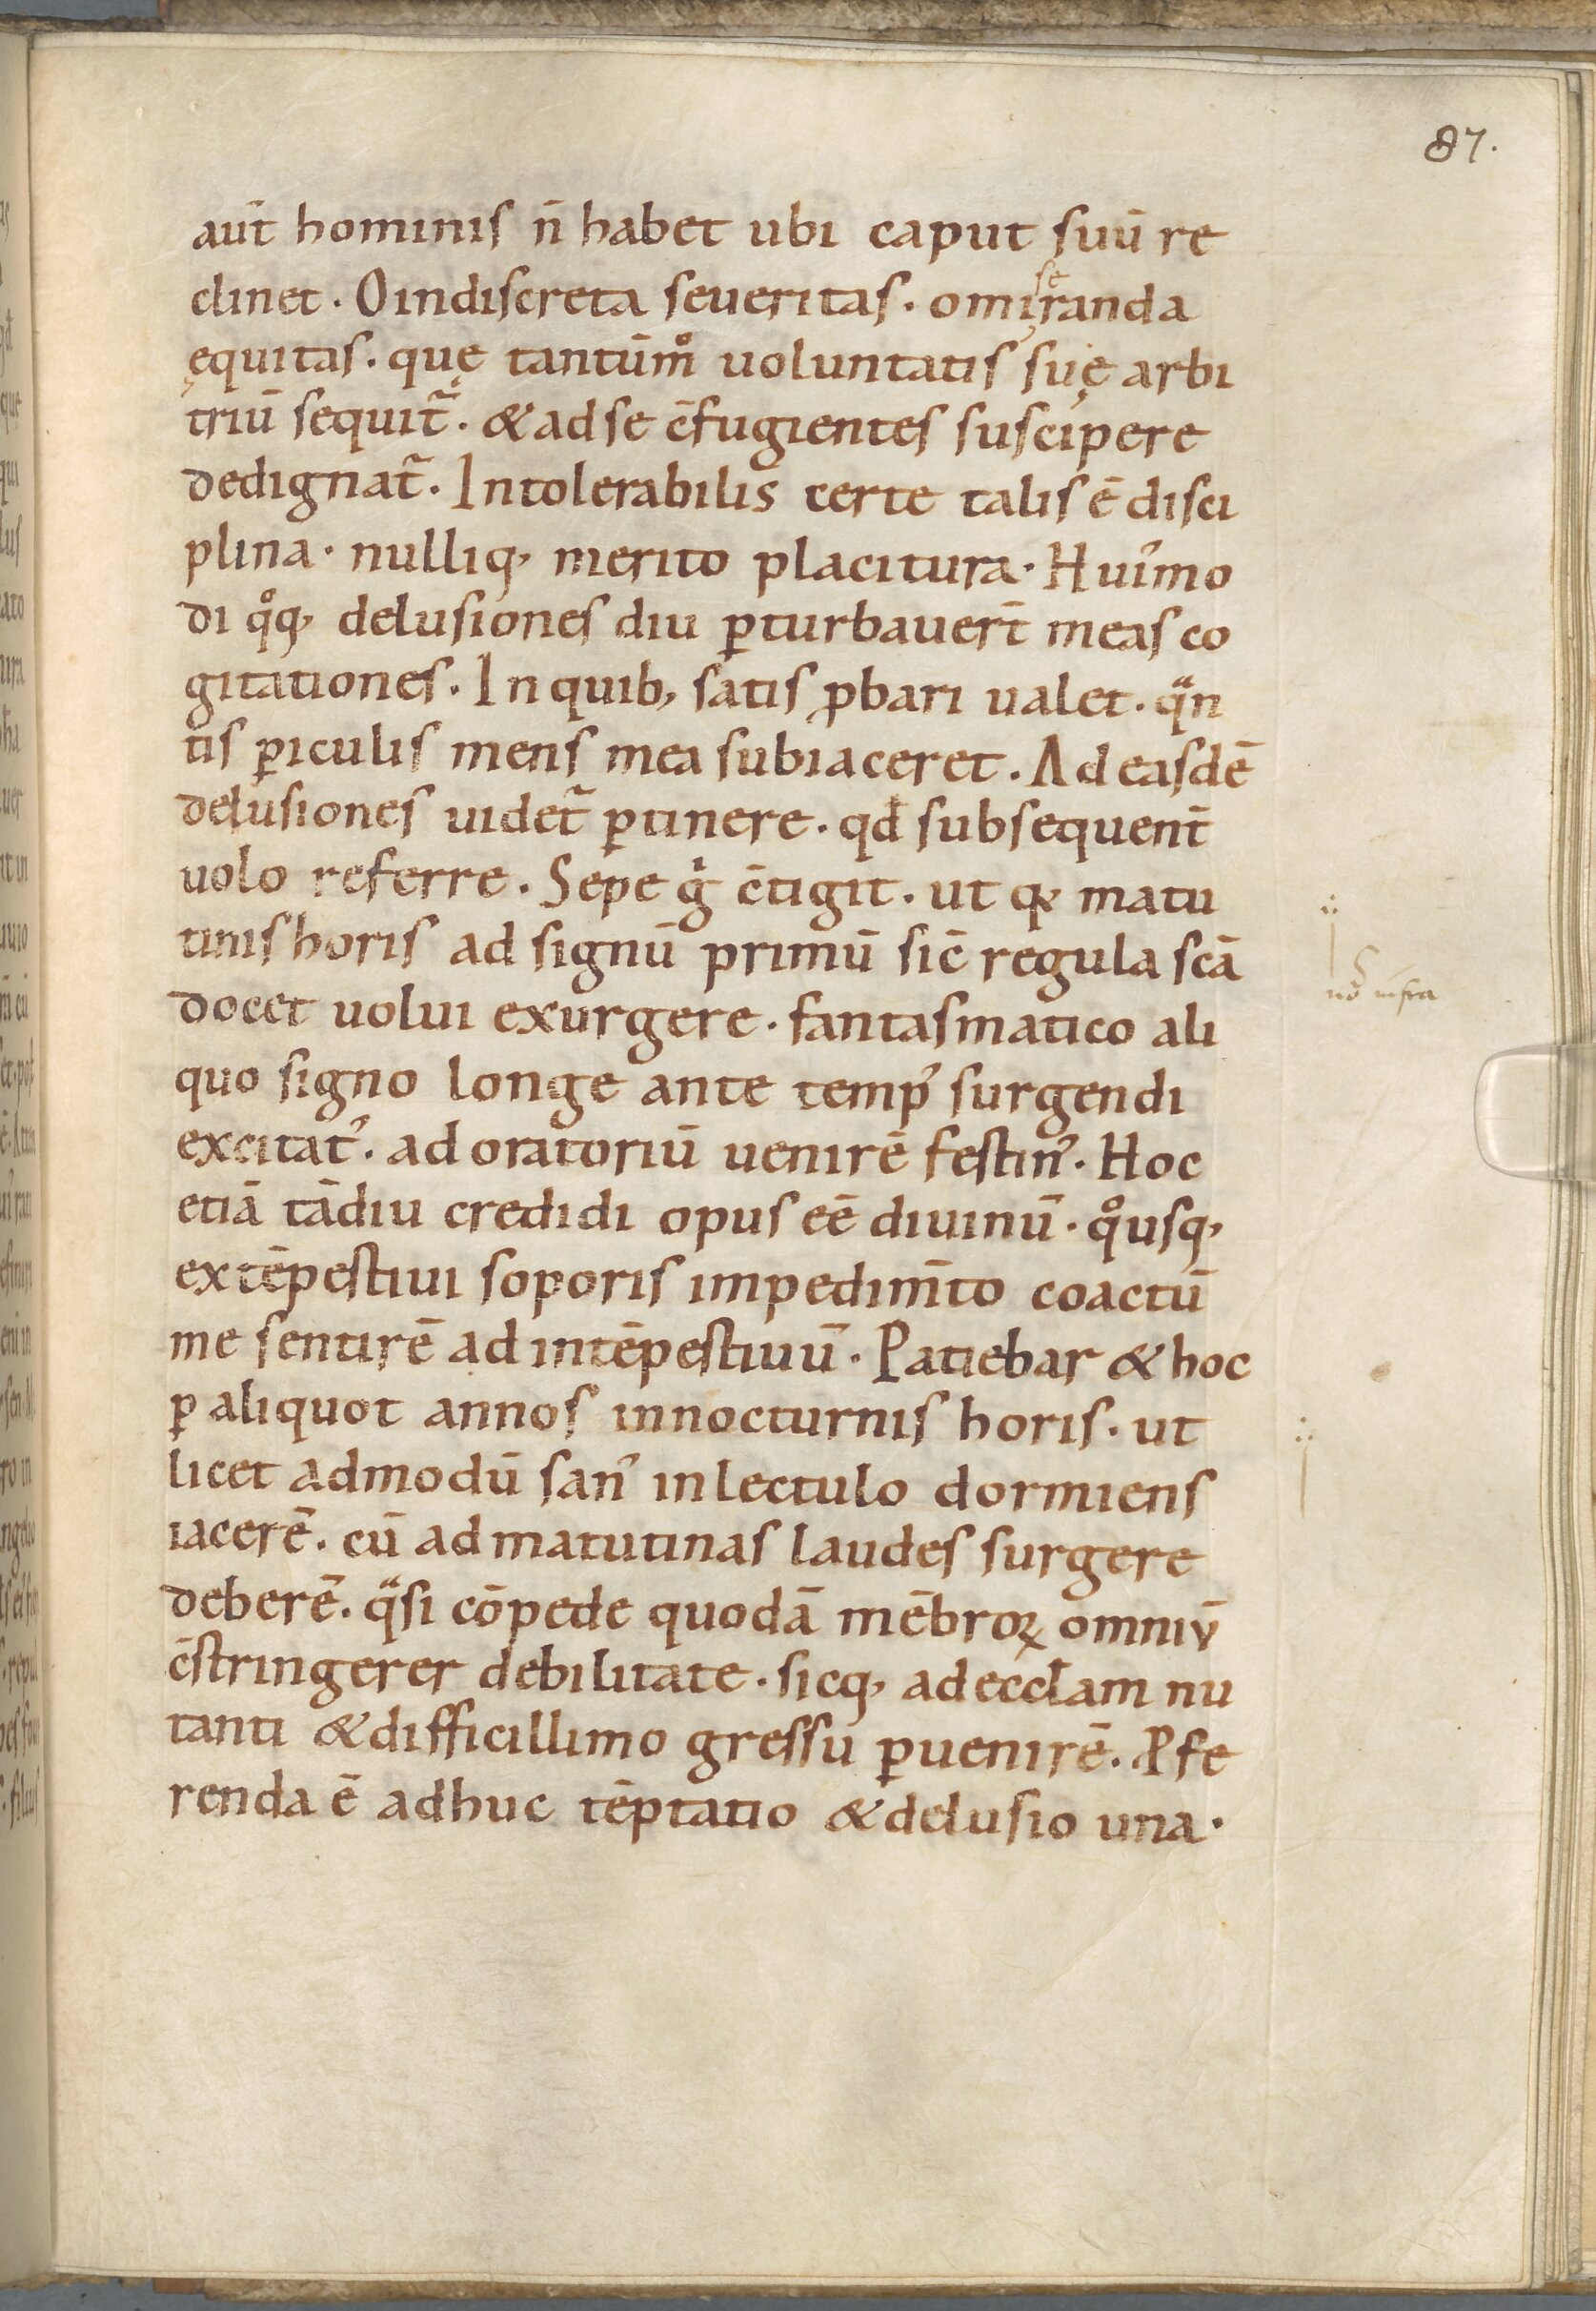 87.
aut̄ hominis n̄ habet ubi caput suū re
clinet. O indiscreta seueritas. o mi seranda
ęquitas. quę tantūmͦ uoluntatis suę arbi
triū sequit᷑. & ad se c̄fugientes suscipere
dedignat᷑. Intolerabilis certe talis ē disci
plina. nulliq; merito placitura. Hui᾽mo
di qͦq; delusiones diu ꝑturbauer̄t meas co
gitationes. In quib; satis ꝓbari ualet. qͣn
tis ꝑiculis mens mea subiaceret. Ad easdē
delusiones uidet᷑ ꝑtinere. qđ subsequent̄
uolo referre. Sepe gͥ c̄tigit. ut q; matu
tinis horis ad signū primū sic̄ regula scā
docet uolui exurgere. fantasmatico ali
quo signo longe ante temp᾽ surgendi
excitat᾽. ad oratoriū uenirē festin᾽. Hoc
etiā tādiu credidi opus eē diuinū. qͦusq;
ex tēpestiui soporis impedim̄to coactū
me sentirē ad intēpestiuū. Patiebar & hoc
ꝑ aliquot annos in nocturnis horis. ut
licet admodū san᾽ in lectulo dormiens
iacerē. cū ad matutinas laudes surgere
deberē. qͣsi cōpede quodā mēbroꝝ omniū
c̄stringerer debilitate. sicq; ad eccƚam nu
tanti & difficillimo gressu ꝑuenirē. Ꝓfe
renda ē adhuc tēptatio & delusio una.
infra